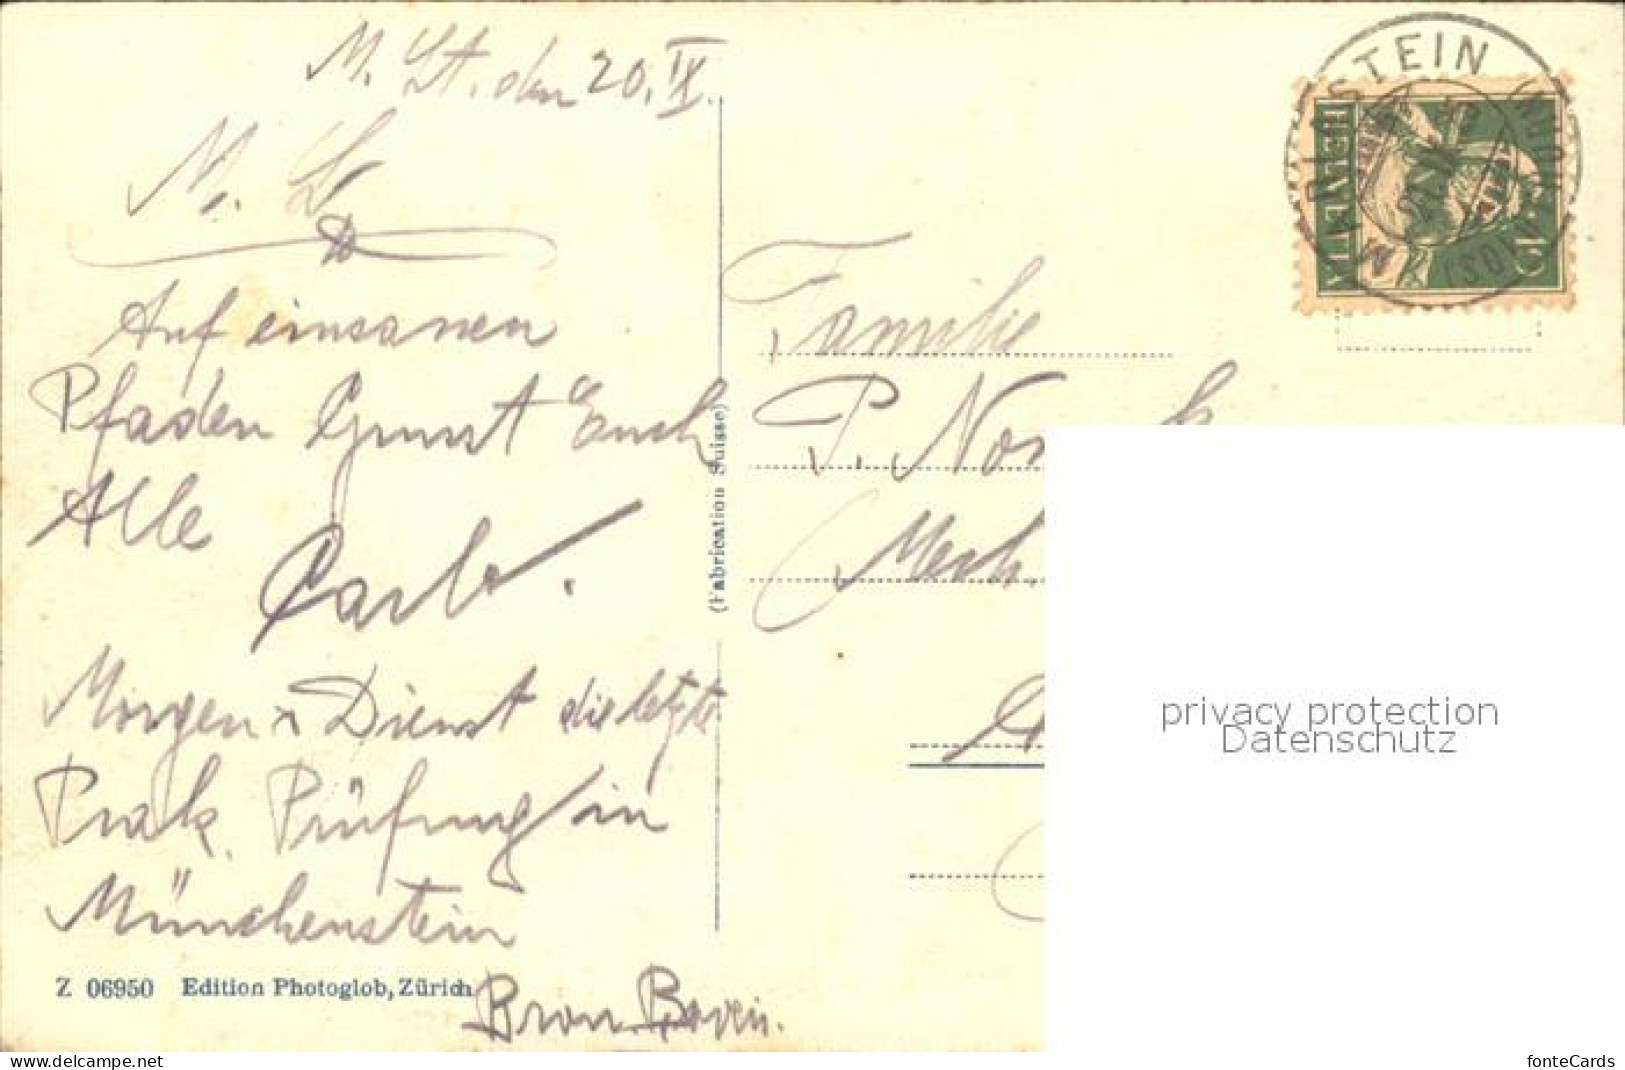 M. St. den 20. IX.
M. L.
Auf einsamen
Pfaden Grüsst Euch
Alle
Carlo.
Morgen Dienst die letzte
Prak. Prüfung in
Münchenstein
Z 06950 Edition Photoglob, Zürich
(Fabrication Suisse)
Familie
P. No
Mech.
MARIASTEIN
(SOLOTHURN)
HELVETIA
10
privacy protection
Datenschutz
www.delcampe.net
fonteCards